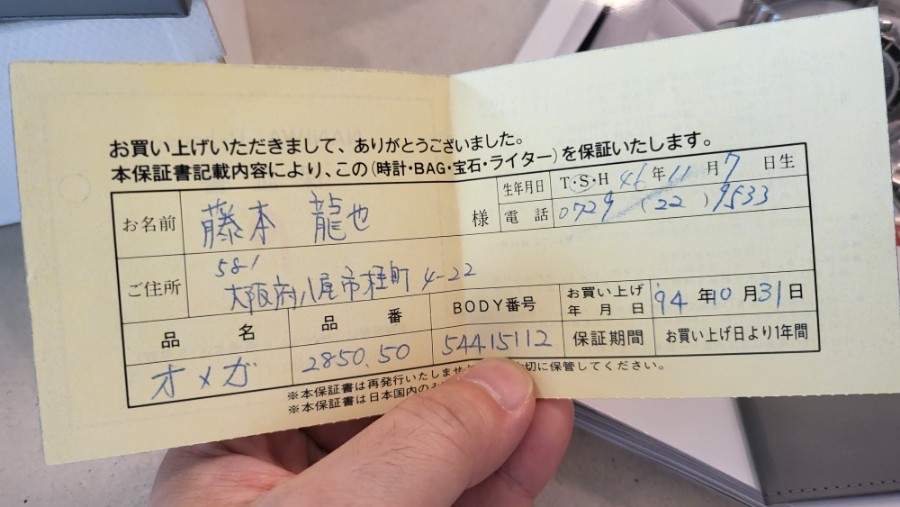 お買い上げいただきまして、ありがとうございました。
本保証書記載内容により、この(時計・BAG・宝石・ライター)を保証いたします。
お名前 藤本 龍也 様 生年月日 T・S・H 46年11月7日生
電話 0729 (22) 9533
ご住所 581
大阪府八尾市桂町 4-22
お買い上げ年月日 '94年10月31日
品名 品番 BODY番号 保証期間 お買い上げ日より1年間
オメガ 2850.50 54415112
※本保証書は再発行いたしませ 切に保管してください。
※本保証書は日本国内のみ